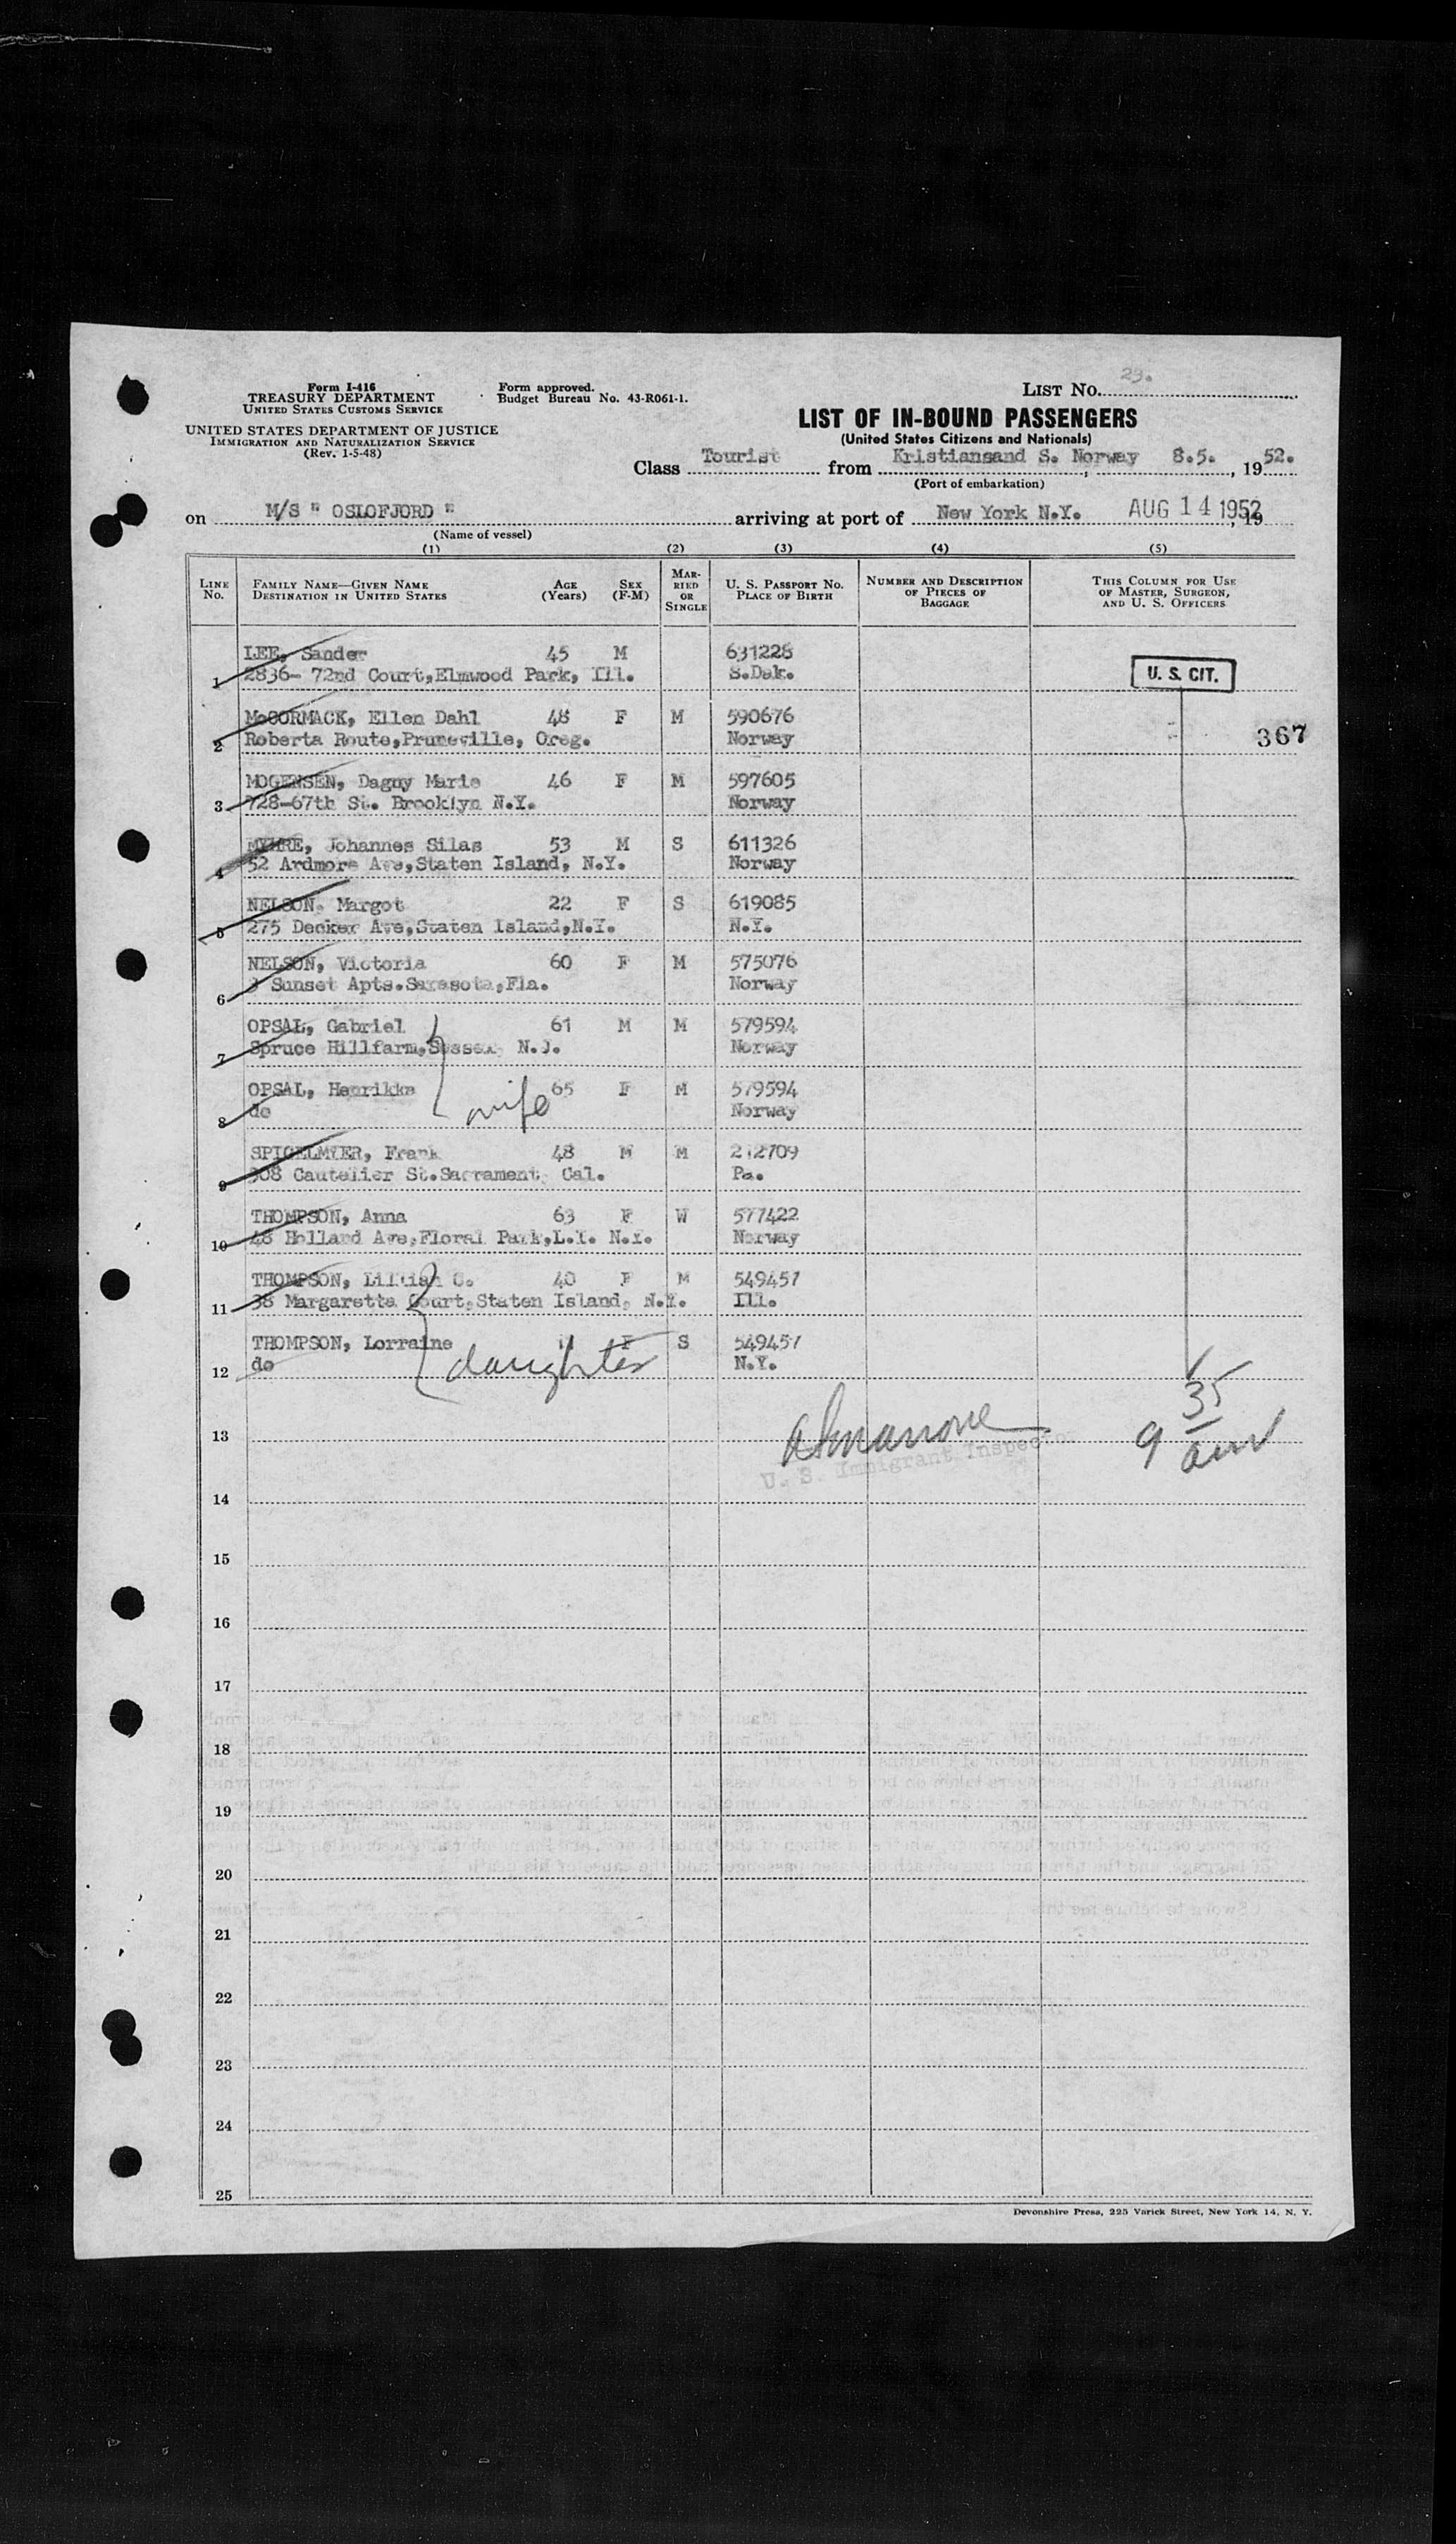 Form I-416
TREASURY DEPARTMENT
UNITED STATES CUSTOMS SERVICE
UNITED STATES DEPARTMENT OF JUSTICE
IMMIGRATION AND NATURALIZATION SERVICE
(Rev. 1-5-48)
Form approved.
Budget Bureau No. 43-R061-1.
LIST No. 23.
LIST OF IN-BOUND PASSENGERS
(United States Citizens and Nationals)
Class Tourist from Kristiansand S. Norway, 8.5., 1952.
(Port of embarkation)
on M/S " OSLOFJORD " arriving at port of New York N.Y. AUG 14 1952, 19
(Name of vessel)
(1) (2) (3) (4) (5)
LINE No. FAMILY NAME—GIVEN NAME DESTINATION IN UNITED STATES AGE (Years) SEX (F-M) MARRIED OR SINGLE U. S. PASSPORT No. PLACE OF BIRTH NUMBER AND DESCRIPTION OF PIECES OF BAGGAGE THIS COLUMN FOR USE OF MASTER, SURGEON, AND U. S. OFFICERS
LEE, Sander 45 M 631228
1 2836- 72nd Court,Elmwood Park, Ill. S.Dak. U. S. CIT.
McCORMACK, Ellen Dahl 48 F M 590676
2 Roberta Route,Pruneville, Oreg. Norway 367
MOGENSEN, Dagny Marie 46 F M 597605
3 728-67th St. Brooklyn N.Y. Norway
MYHRE, Johannes Silas 53 M S 611326
4 52 Ardmore Ave,Staten Island, N.Y. Norway
NELSON, Margot 22 F S 619085
5 275 Decker Ave,Staten Island,N.Y. N.Y.
NELSON, Victoria 60 F M 575076
6 Sunset Apts.Sarasota,Fla. Norway
OPSAL, Gabriel 61 M M 579594
7 Spruce Hillfarm,Sussex N.J. Norway
OPSAL, Henrikke 65 F M 579594
8 do wife Norway
SPIGELMYER, Frank 48 M M 212709
9 308 Cautelier St.Sacrament, Cal. Pa.
THOMPSON, Anna 63 F W 577422
10 48 Holland Ave,Floral Park,L.I. N.Y. Norway
THOMPSON, Lillian C. 40 F M 549457
11 38 Margaretta Court,Staten Island, N.Y. Ill.
THOMPSON, Lorraine F S 549457
12 do daughter N.Y.
9 35 am
13
U. S. Immigrant Inspector
14
15
16
17
18
19
20
21
22
23
24
25
Devonshire Press, 225 Varick Street, New York 14, N. Y.